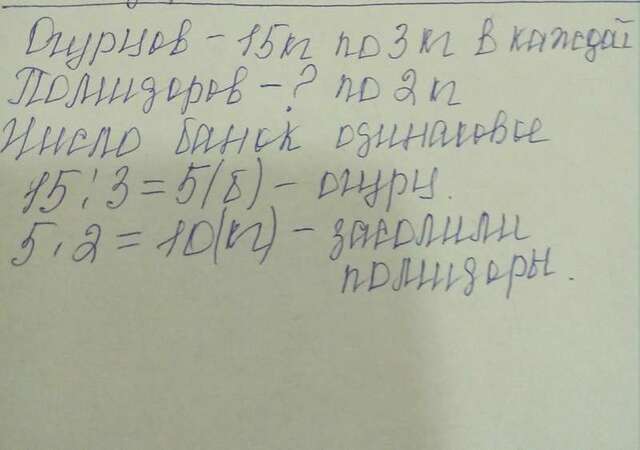 Огурцов - 15кг по 3 кг в каждой
Помидоров - ? по 2 кг
Число банок одинаковое
15:3=5(б) - огурц.
5·2=10(кг) - засолили
помидоры.